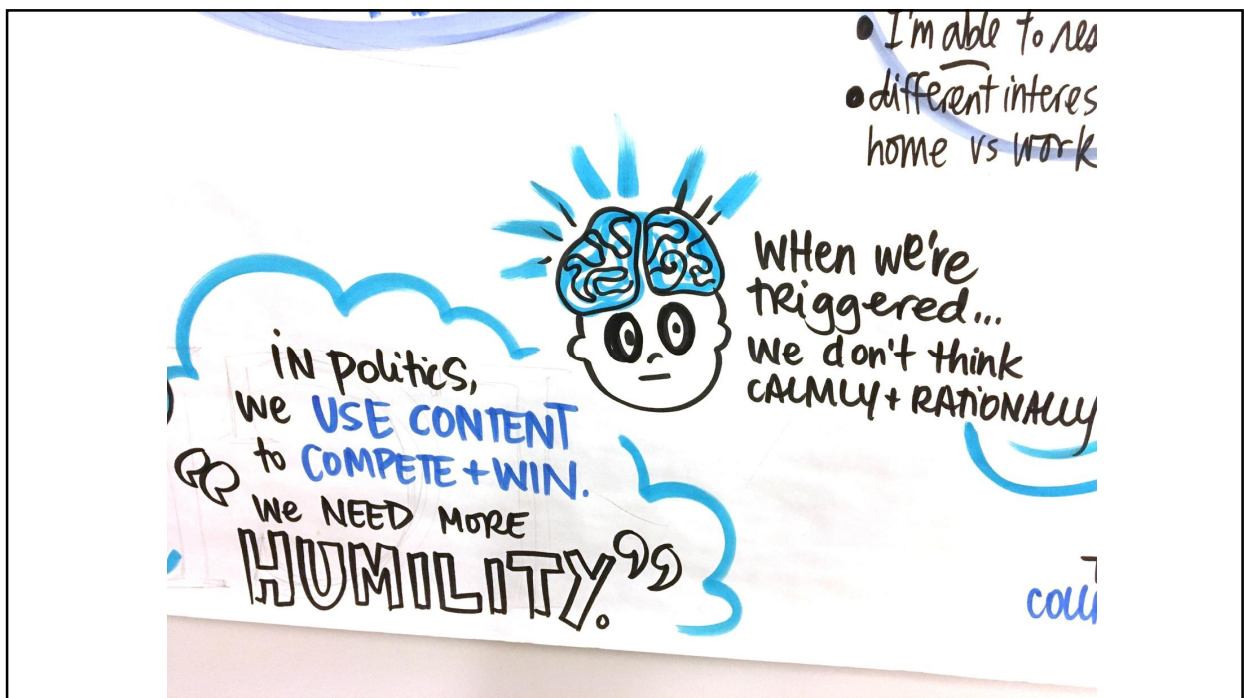 I'm able to
different
home vs work
WHen we're
TRiggered...
we don't think
CALMLY + RATIONALLY
iN politics,
we USE CONTENT
to COMPETE + WIN.
“we NEED MORE
HUMILITY.”